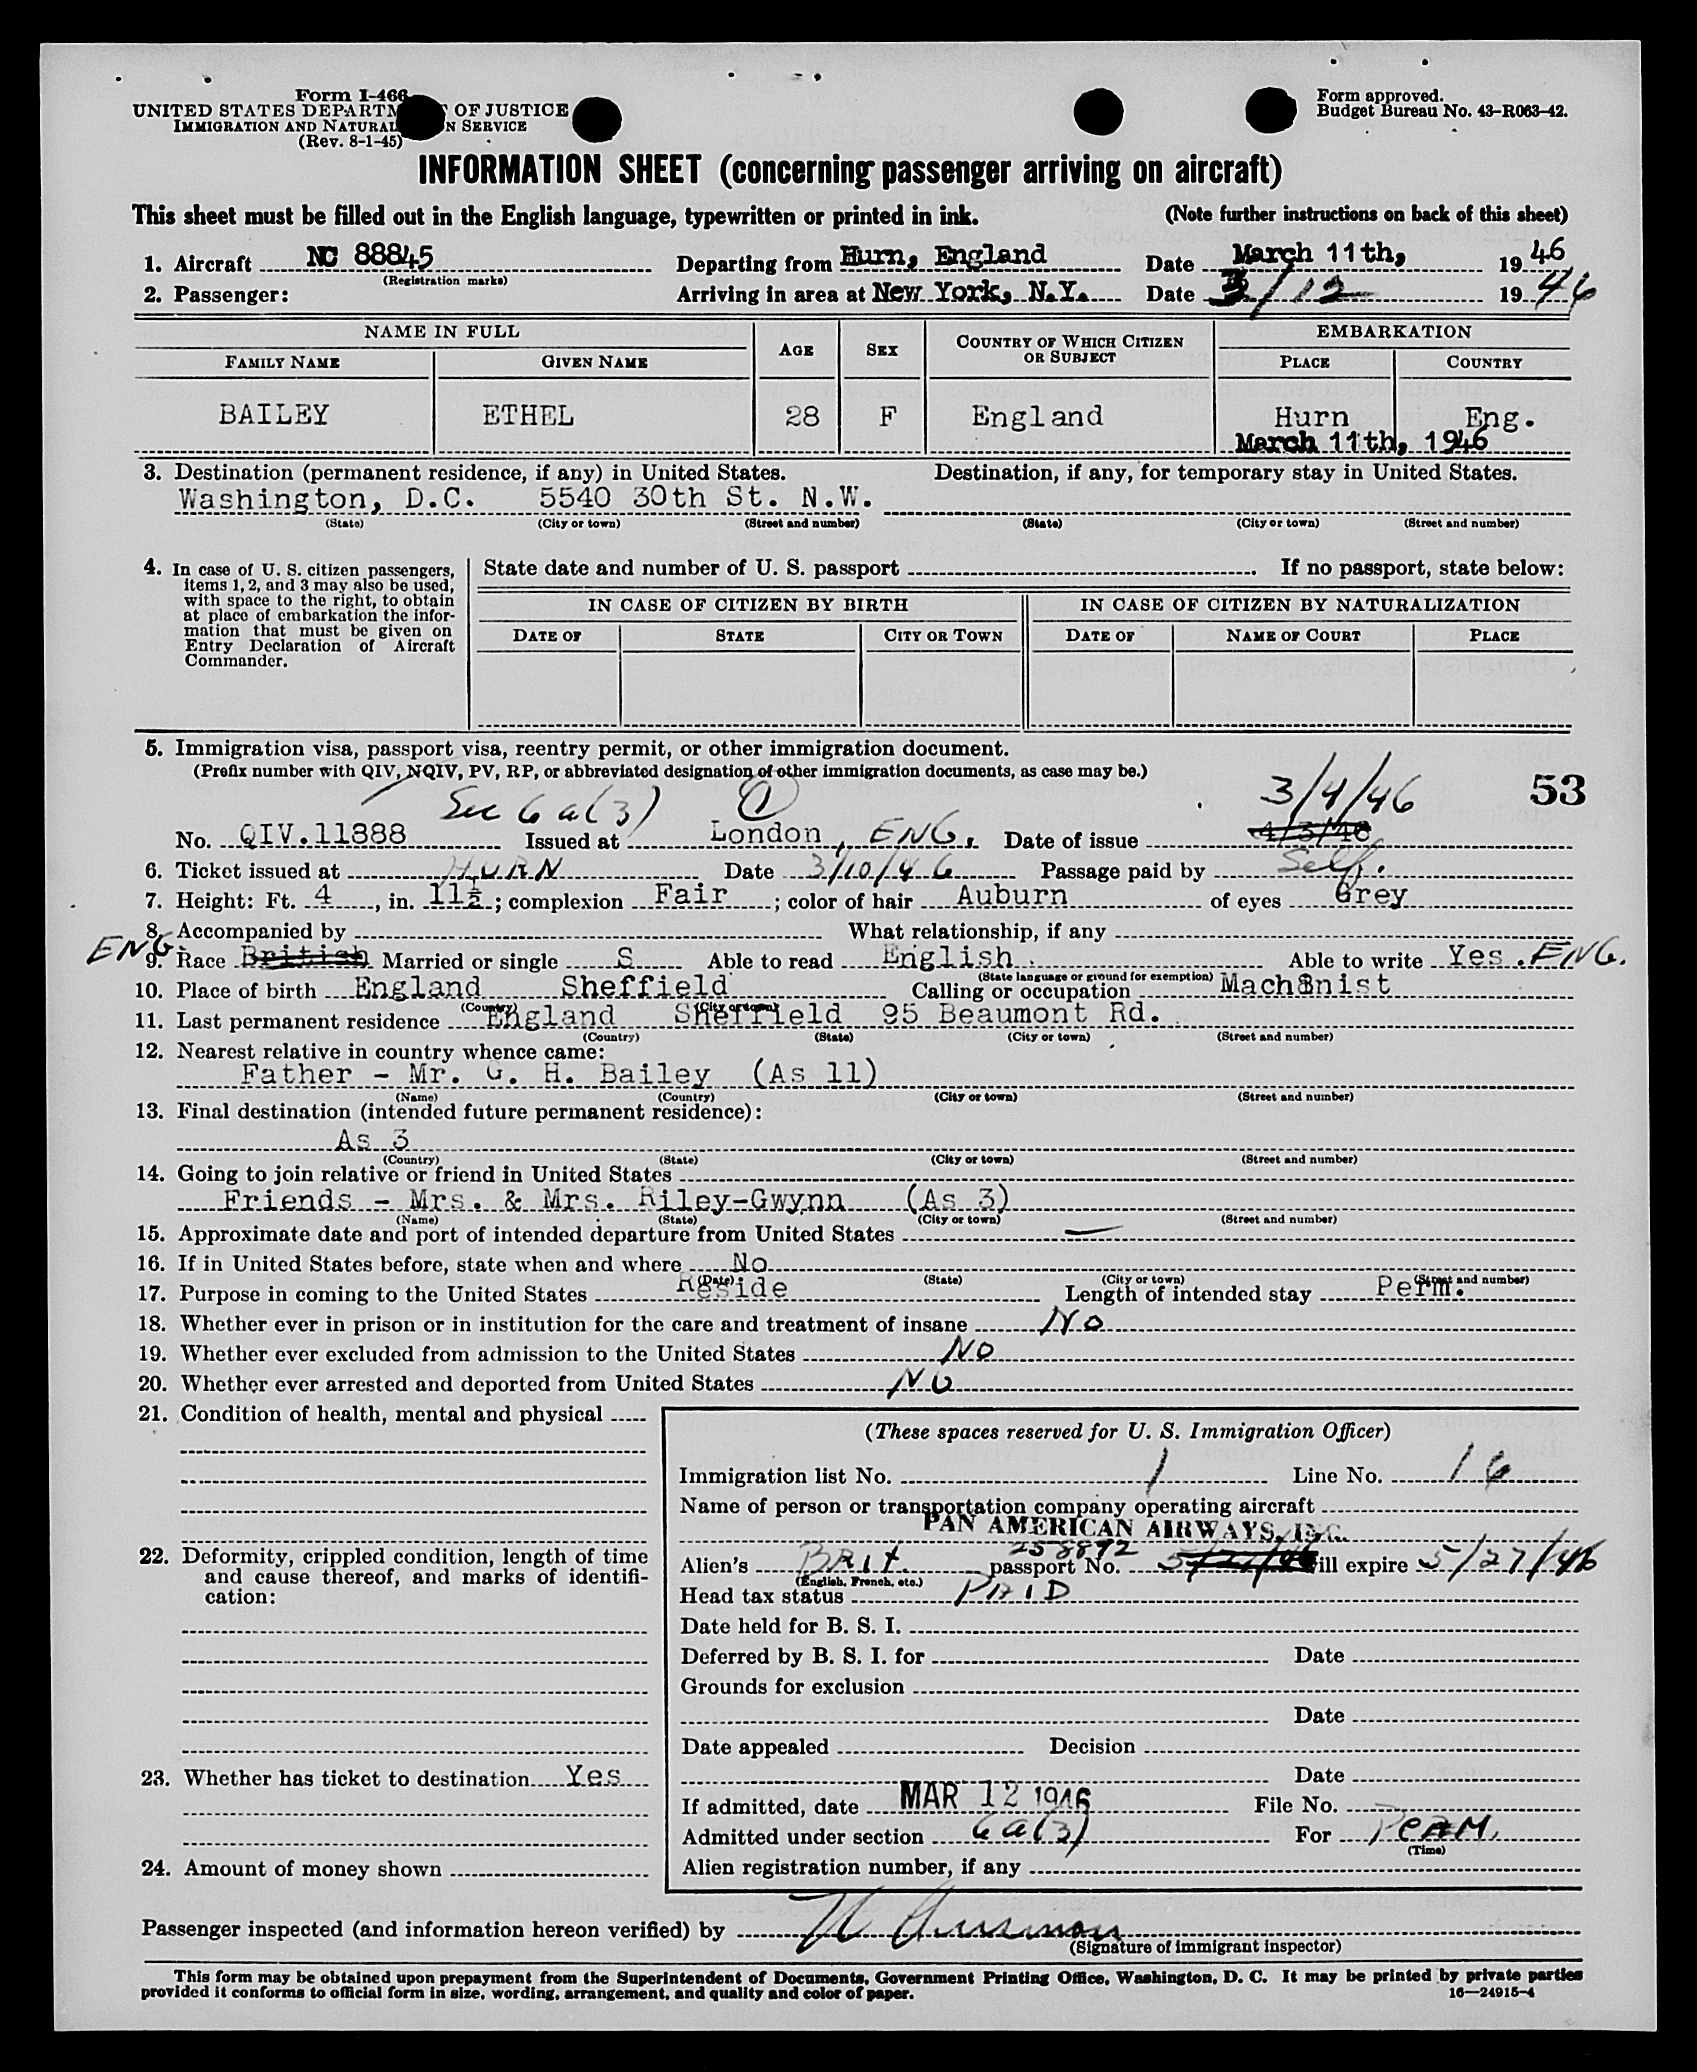 Form I-466
UNITED STATES DEPARTM OF JUSTICE
IMMIGRATION AND NATURAL N SERVICE
(Rev. 8-1-45)
Form approved.
Budget Bureau No. 43-R063-42.
INFORMATION SHEET (concerning passenger arriving on aircraft)
This sheet must be filled out in the English language, typewritten or printed in ink. (Note further instructions on back of this sheet)
1. Aircraft NC 88845 Departing from Hurn, England Date March 11th, 1946
(Registration marks)
2. Passenger: Arriving in area at New York, N.Y. Date 3/12 1946
NAME IN FULL AGE SEX COUNTRY OF WHICH CITIZEN OR SUBJECT EMBARKATION
FAMILY NAME GIVEN NAME PLACE COUNTRY
BAILEY ETHEL 28 F England Hurn Eng.
March 11th, 1946
3. Destination (permanent residence, if any) in United States. Destination, if any, for temporary stay in United States.
Washington, D.C. 5540 30th St. N.W.
(State) (City or town) (Street and number) (State) (City or town) (Street and number)
4. In case of U. S. citizen passengers,
items 1, 2, and 3 may also be used,
with space to the right, to obtain
at place of embarkation the infor-
mation that must be given on
Entry Declaration of Aircraft
Commander.
State date and number of U. S. passport If no passport, state below:
IN CASE OF CITIZEN BY BIRTH IN CASE OF CITIZEN BY NATURALIZATION
DATE OF STATE CITY OR TOWN DATE OF NAME OF COURT PLACE
5. Immigration visa, passport visa, reentry permit, or other immigration document.
(Prefix number with QIV, NQIV, PV, RP, or abbreviated designation of other immigration documents, as case may be.)
Sec 6 a(3) 1 3/4/46 53
No. QIV.11888 Issued at London, ENG. Date of issue 4/3/46
6. Ticket issued at HURN Date 3/10/46 Passage paid by Self.
7. Height: Ft. 4, in. 11½; complexion Fair; color of hair Auburn of eyes Grey
8. Accompanied by What relationship, if any
ENG.
9. Race British Married or single S Able to read English Able to write Yes. ENG.
(State language or ground for exemption)
10. Place of birth England Sheffield Calling or occupation Machinist
(Country) (City or town)
11. Last permanent residence England Sheffield 95 Beaumont Rd.
(Country) (State) (City or town) (Street and number)
12. Nearest relative in country whence came:
Father - Mr. G. H. Bailey (As 11)
(Name) (Country) (City or town) (Street and number)
13. Final destination (intended future permanent residence):
As 3
(Country) (State) (City or town) (Street and number)
14. Going to join relative or friend in United States
Friends - Mrs. & Mrs. Riley-Gwynn (As 3)
(Name) (State) (City or town) (Street and number)
15. Approximate date and port of intended departure from United States —
16. If in United States before, state when and where No
(Date) (State) (City or town) (Street and number)
17. Purpose in coming to the United States Reside Length of intended stay Perm.
18. Whether ever in prison or in institution for the care and treatment of insane NO
19. Whether ever excluded from admission to the United States NO
20. Whether ever arrested and deported from United States NO
21. Condition of health, mental and physical
22. Deformity, crippled condition, length of time
and cause thereof, and marks of identifi-
cation:
23. Whether has ticket to destination Yes
24. Amount of money shown
(These spaces reserved for U. S. Immigration Officer)
Immigration list No. 1 Line No. 16
Name of person or transportation company operating aircraft
PAN AMERICAN AIRWAYS, INC.
258892
Alien's BRIT. passport No. 5/27/46 will expire 5/27/46
(English, French, etc.)
Head tax status PAID
Date held for B. S. I.
Deferred by B. S. I. for Date
Grounds for exclusion
Date
Date appealed Decision
Date
If admitted, date MAR 12 1946 File No.
Admitted under section 6a(3) For PERM.
(Time)
Alien registration number, if any
Passenger inspected (and information hereon verified) by
(Signature of immigrant inspector)
This form may be obtained upon prepayment from the Superintendent of Documents, Government Printing Office, Washington, D. C. It may be printed by private parties
provided it conforms to official form in size, wording, arrangement, and quality and color of paper. 16—24915-4